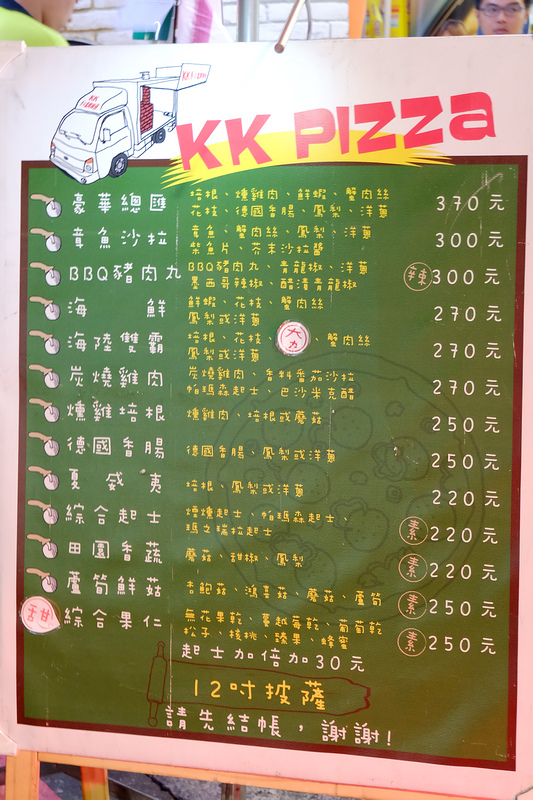 KK PIZZA
KK PIZZA
豪華總匯 培根、燻雞肉、鮮蝦、蟹肉絲 370元
花枝、德國香腸、鳳梨、洋蔥
章魚沙拉 章魚、蟹肉絲、鳳梨、洋蔥 300元
柴魚片、芥末沙拉醬
BBQ豬肉丸 BBQ豬肉丸、青龍椒、洋蔥 辣 300元
墨西哥辣椒、醋漬青龍椒
海鮮 鮮蝦、花枝、蟹肉絲 270元
鳳梨或洋蔥
海陸雙霸 培根、花枝、 、蟹肉絲 270元
鳳梨或洋蔥
炭燒雞肉 炭燒雞肉、香料番茄沙拉 270元
帕瑪森起士、巴沙米克醋
燻雞培根 燻雞肉、培根或蘑菇 250元
德國香腸 德國香腸、鳳梨或洋蔥 250元
夏威夷 培根、鳳梨或洋蔥 220元
綜合起士 煙燻起士、帕瑪森起士、 素 220元
瑪芝瑞拉起士
田園香蔬 蘑菇、甜椒、鳳梨 素 220元
蘆筍鮮菇 杏鮑菇、鴻喜菇、蘑菇、蘆筍 素 250元
甜 綜合果仁 無花果乾、蔓越莓乾、葡萄乾 素 250元
松子、核桃、腰果、蜂蜜
起士加倍加30元
12吋披薩
請先結帳,謝謝!